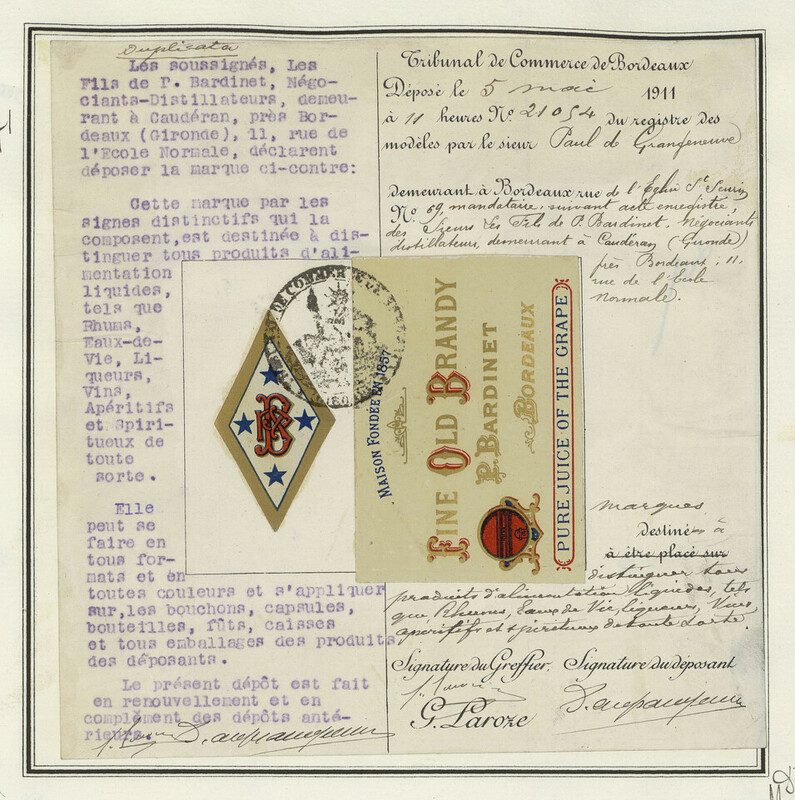 Duplicata
Les soussignés, Les
Fils de P. Bardinet, Négo-
ciants-Distillateurs, demeu-
rant à Caudéran, près Bor-
deaux (Gironde), 11, rue de
l'Ecole Normale, déclarent
déposer la marque ci-contre:
Cette marque par les
signes distinctifs qui la
composent,est destinée à dis-
tinguer tous produits d'ali-
mentation
liquides,
tels que
Rhums,
Eaux-de-
Vie, Li-
queurs,
Vins,
Apéritifs
et Spiri-
tueux de
toute
sorte.
Elle
peut se
faire en
tous for-
mats et en
toutes couleurs et s'appliquer
sur,les bouchons, capsules,
bouteilles, fûts, caisses
et tous emballages des produits
des déposants.
Le présent dépôt est fait
en renouvellement et en
complément des dépôts anté-
rieurs.
Tribunal de Commerce de Bordeaux
Déposé le 5 mai 1911
à 11 heures No. 21054 du registre des
modèles par le sieur Paul de Granfeneuve
demeurant à Bordeaux rue de l'Eglise St Seurin
No. 69, mandataire, suivant acte enregistré
des Sieurs Les Fils de P. Bardinet, Négociants
distillateurs, demeurant à Caudéran (Gironde)
près Bordeaux, 11,
rue de l'Ecole
Normale.
MAISON FONDÉE EN 1857
FINE OLD BRANDY
P. BARDINET
BORDEAUX
PURE JUICE OF THE GRAPE
marques
destinées à
à être placé sur
distinguer tous
produits d'alimentation liquides, tels
que Rhums, Eaux de Vie, liqueurs, Vins,
apéritifs et spiritueux de toute sorte.
Signature du Greffier. Signature du déposant
G. Laroze